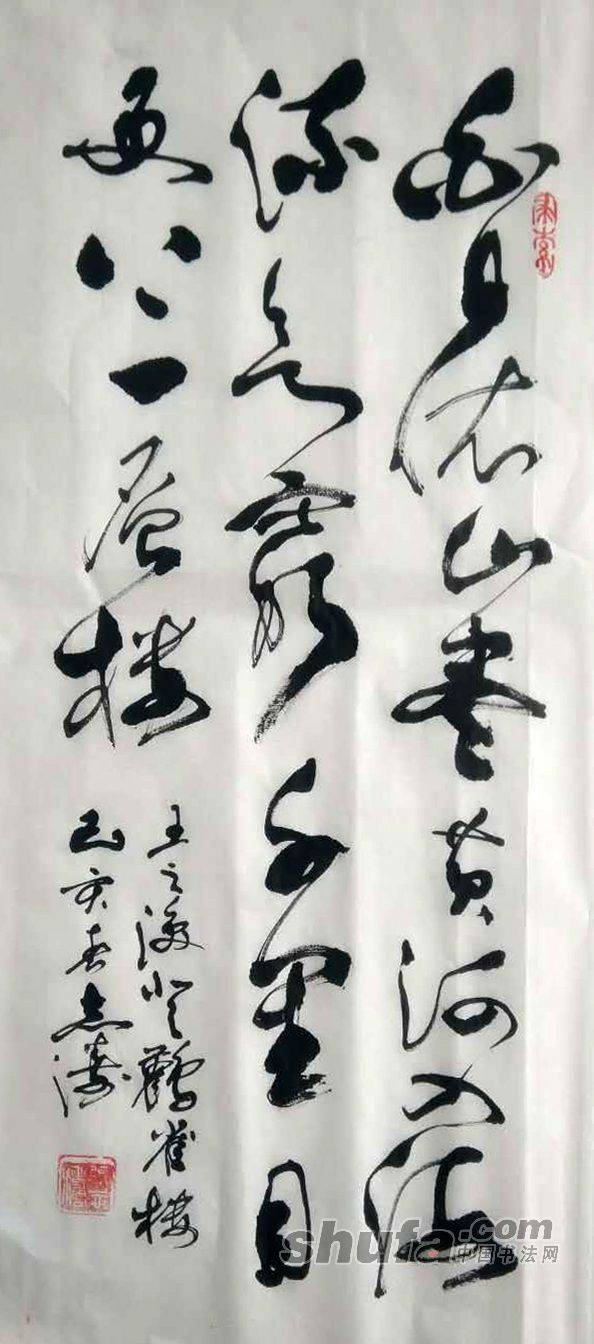 白日依山盡黄河入海
流欲窮千里目
更上一層楼
王之涣登鸛雀楼
己亥春志濤
shufa.com
中国书法网